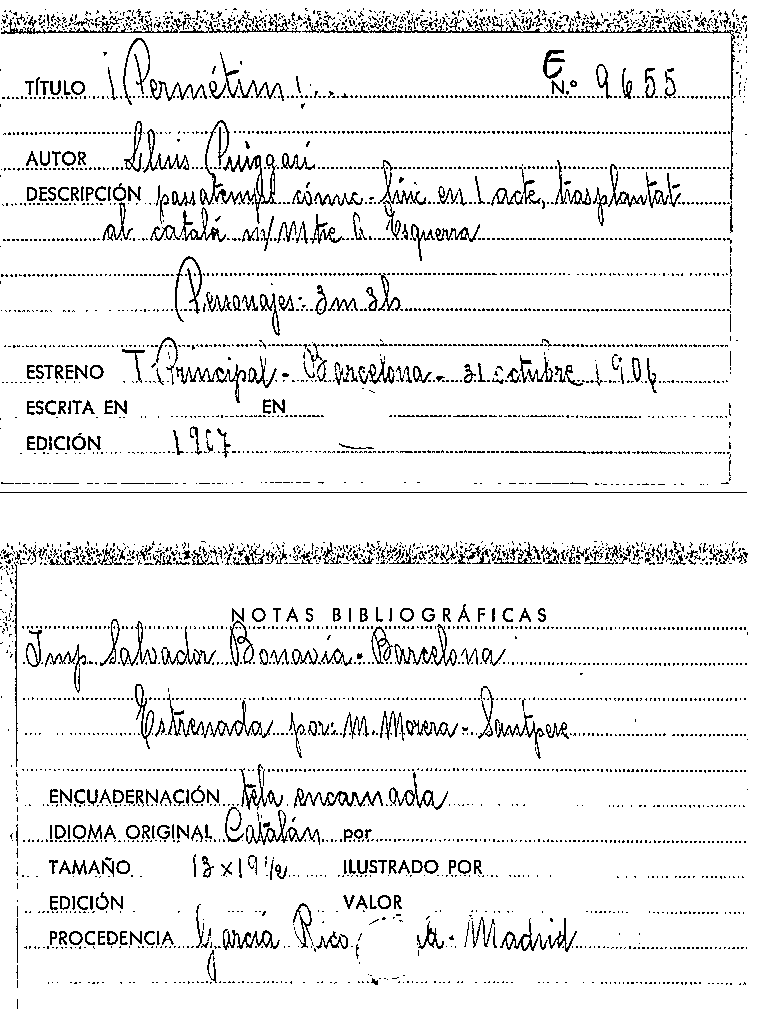 TÍTULO ¡Permétim!... E N.º 9655
AUTOR Lluis Puiggarí
DESCRIPCIÓN passatemps cómic-líric en 1 acte, trasplantat
al catalá m/Mtre A. Esquerra
Personajes: 3m 3h
ESTRENO T Principal - Barcelona - 31 octubre 1906
ESCRITA EN EN
EDICIÓN 1907
NOTAS BIBLIOGRÁFICAS
Imp Salvador Bonavía - Barcelona
Estrenada por: M. Morera - Santpere
ENCUADERNACIÓN tela encarnada
IDIOMA ORIGINAL Catalán por
TAMAÑO 13 x 19 1/2 ILUSTRADO POR
EDICIÓN VALOR
PROCEDENCIA García Rico - Madrid